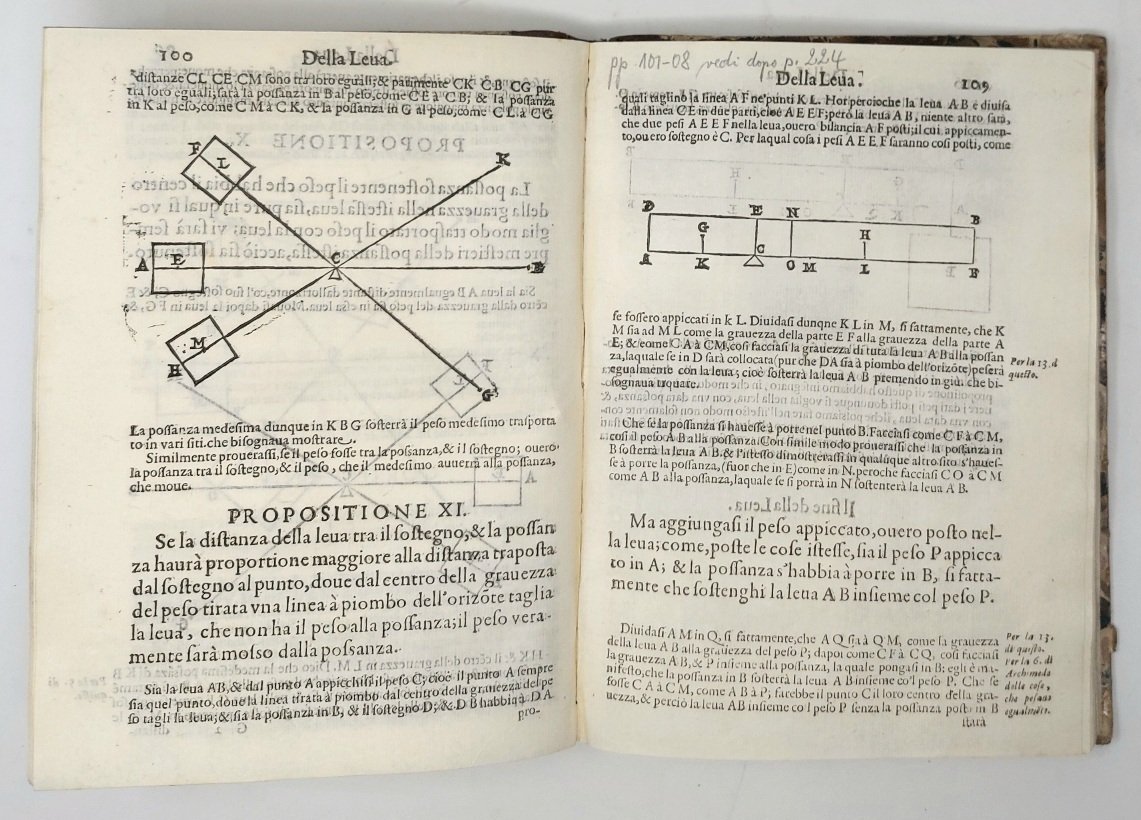 100
Della Leua.
distanze CL CE CM sono tra loro eguali; & parimente CK CB CG pur
tra loro eguali, sarà la possanza in B al peso, come CE à CB; & la possanza
in K al peso, come C M à C K, & la possanza in G al peso, come C L à C G
F
L
K
A
E
C
B
M
H
G
La possanza medesima dunque in K B G sosterrà il peso medesimo trasporta
to in vari siti. che bisognaua mostrare.
Similmente prouerassi, se il peso fosse tra la possanza, & il sostegno; ouero
la possanza tra il sostegno, & il peso, che il medesimo auuerrà alla possanza,
che moue.
PROPOSITIONE XI.
Se la distanza della leua tra il sostegno, & la possan
za haurà proportione maggiore alla distanza traposta
dal sostegno al punto, doue dal centro della grauezza
del peso tirata vna linea à piombo dell'orizõte taglia
la leua, che non ha il peso alla possanza; il peso vera-
mente sarà mosso dalla possanza.
Sia la leua AB, & dal punto A appicchisi il peso C; cioè il punto A sempre
sia quel punto, doue la linea tirata à piombo dal centro della grauezza del pe
so tagli la leua; & sia la possanza in B, & il sostegno D; & D B habbia à D A
pro-
pp 101-08 vedi dopo p. 224
Della Leua.
109
quali taglino la linea A F ne' punti K L. Hor percioche la leua A B è diuisa
dalla linea C E in due parti, cioè A E E F; però la leua A B, niente altro sarà,
che due pesi A E E F nella leua, ouero bilancia A F posti; il cui appiccamen-
to, ouero sostegno è C. Per laqual cosa i pesi A E E F saranno così posti, come
D
E
N
B
G
H
A
K
C
O M
L
F
se fossero appiccati in k L. Diuidasi dunqne K L in M, sì fattamente, che K
M sia ad M L come la grauezza della parte E F alla grauezza della parte A
E; & come C A à CM, così facciasi la grauezza di tuta la leua A B alla possan
za, laquale se in D sarà collocata (pur che DA sia à piombo dell'orizõte) peserà
egualmente con la leua; cioè sosterrà la leua A B premendo in giù. che bi-
sognaua trouare.
Per la 13. d
questo.
Che se la possanza si hauesse à porre nel punto B. Facciasi come C F à C M,
così il peso A B alla possanza. Con simile modo prouerassi che la possanza in
B sosterrà la leua A B. & l'istesso dimostrerassi in qualsiuque altro sito s'haues-
se à porre la possanza, (fuor che in E) come in N. peroche facciasi C O à C M
come A B alla possanza, laquale se si porrà in N sostenterà la leua A B.
Ma aggiungasi il peso appiccato, ouero posto nel-
la leua; come, poste le cose istesse, sia il peso P appicca
to in A; & la possanza s'habbia à porre in B, sì fatta-
mente che sostenghi la leua A B insieme col peso P.
Diuidasi A M in Q, sì fattamente, che A Q sia à Q M, come la grauezza
della leua A B alla grauezza del peso P; dapoi come C F à C Q, così facciasi
la grauezza A B, & P insieme alla possanza, la quale pongasi in B; egli è ma-
nifesto, che la possanza in B sosterrà la leua A B insieme co'l peso P. Che se
fosse C A à C M, come A B à P; sarebbe il punto C il loro centro della gra-
uezza, & perciò la leua AB insieme co'l peso P senza la possanza posta in B
Per la 13.
di questo.
Per la 6. di
Archimede
delle cose,
che pesano
egualmẽte.
starà